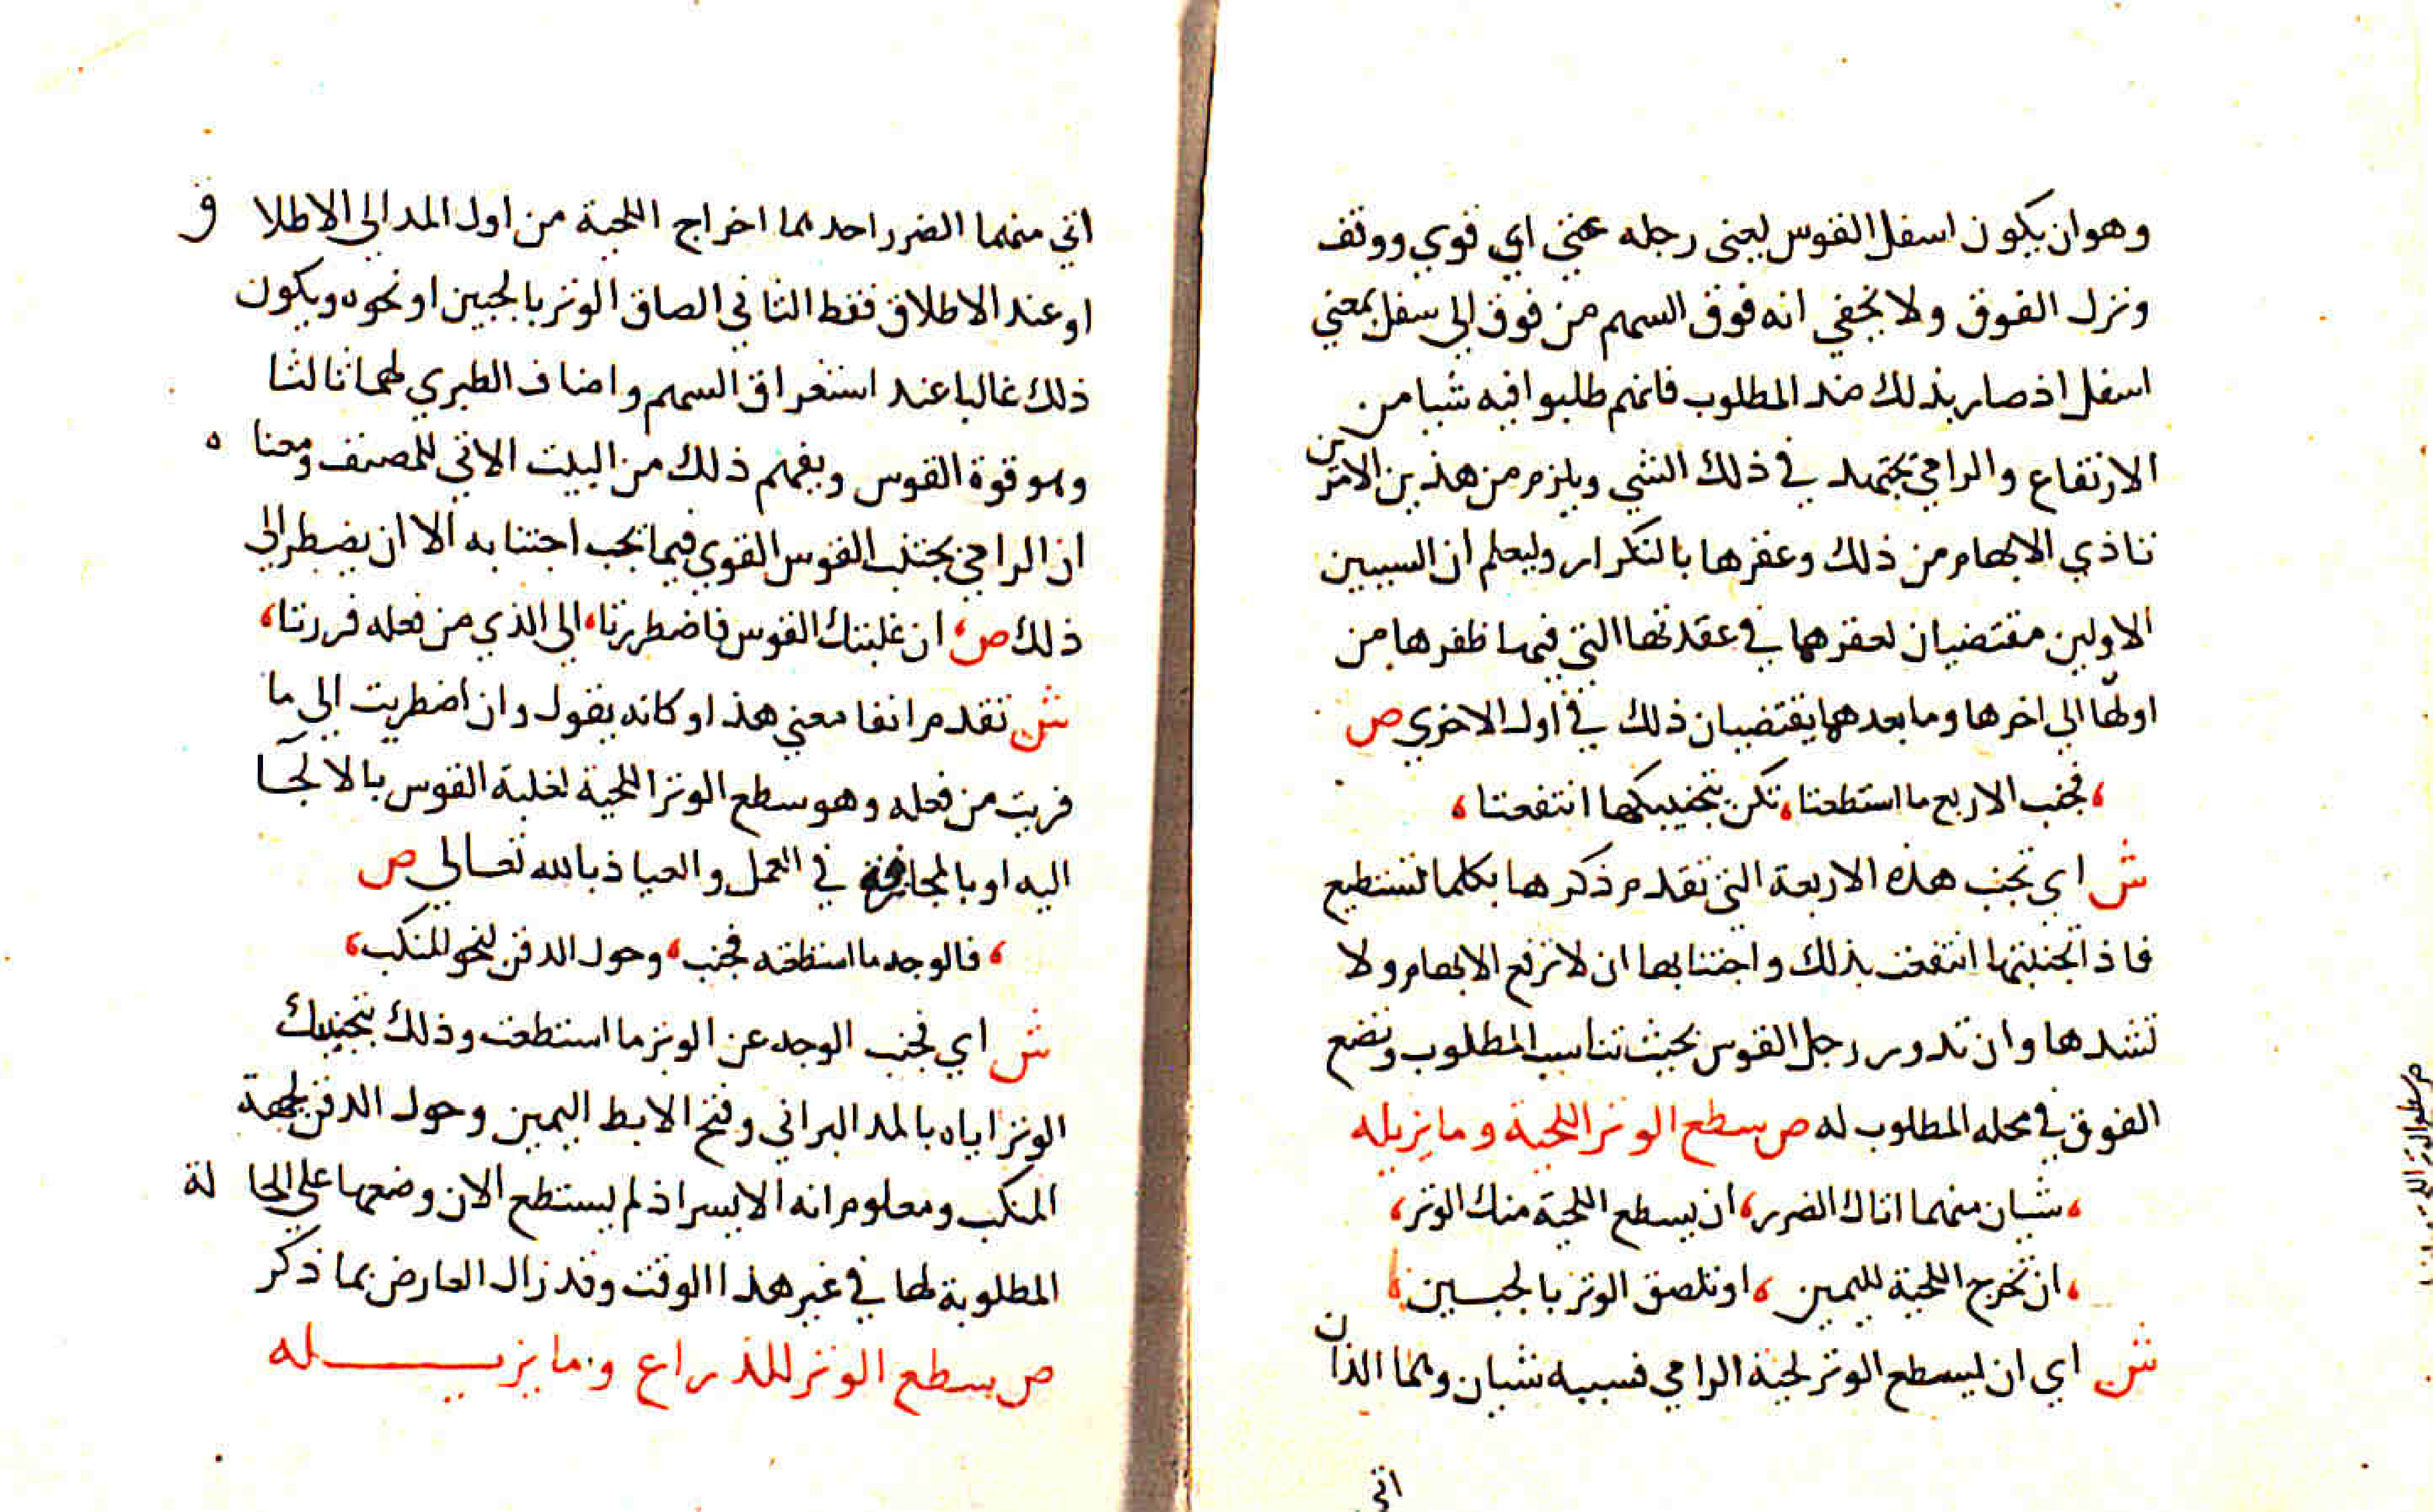 وهوان يكون اسفل القوس يعنى رجله عتى اي قوي ووقف
ونزل الفوق ولا يخفي انه فوق السهم من فوق الي سفل بمعني
اسفل اذ صار بذلك ضد المطلوب فانهم طلبوا فيه شيا من
الارتفاع والرامي يجتهد في ذلك الشي ويلزم من هذين الامرين
تاذي الابهام من ذلك وعقرها بالتكرار وليعلم ان السببين
الاولين مقتضيان لعقرهما في عقدتها التي فيها ظفرها من
اولها الي اخرها وما بعدهما يقتضيان ذلك في اول الاخري ص
، فجنب الاربع ما استطعتا، تكن بتجنيبكها انتفعتا ،
ش اي تجنب هذه الاربعة التي تقدم ذكرها بكلما تستطيع
فاذ اتجنبتها انتفعت بذلك واجتنابها ان لا ترفع الابهام ولا
تشدها وان تدور رجل القوس بحيث تناسب المطلوب وتضع
الفوق في محله المطلوب له ص سطع الوتر اللحية وما يزيله
، شيان منهما اتاك الضرر، ان يسطع اللحية منك الوتر،
، ان تخرج اللحية لليمين ، او تلصق الوتر بالجبين ،
ش اي ان ليسطع الوتر لحية الرامي فسببه شيان وهما الذان
اتي
اتي منهما الضرر احدهما اخراج اللحية من اول المد الي الاطلاق
او عند الاطلاق فقط الثاني الصاق الوتر بالجبين او نحوه ويكون
ذلك غالبا عند استغراق السهم واضاف الطبري لهما ثالثا
وهو قوة القوس ويفهم ذلك من البيت الاتي للمصنف ومعناه
ان الرامي يجتنب القوس القوي فيما يجب اجتنابه الا ان يضطر الي
ذلك ص، ان غلبتك القوس فاضطررتا، الي الذي من فعله فررتا،
ش تقدم انفا معني هذا وكانه يقول وان اضطريت الي ما
فريت من فعله وهو سطع الوتر اللحية لغلبة القوس بالالجا
اليه او بالمجازفة في العمل والعياذ بالله تعالي ص
، فالوجه ما استطعته فجنب، وحول الدقن لنحو المنكب،
ش اي فجنب الوجه عن الوتر ما استطعت وذلك بتجنيبك
الوتر اياه بالمد البراني وفتح الابط اليمين وحول الدقن لجهة
المنكب ومعلوم انه الايسر اذ لم يستطع الان وضعها علي الحالة
المطلوبة لها في غير هذا الوقت وقد زال العارض بما ذكر
ص سطع الوتر للذراع وما يزيله